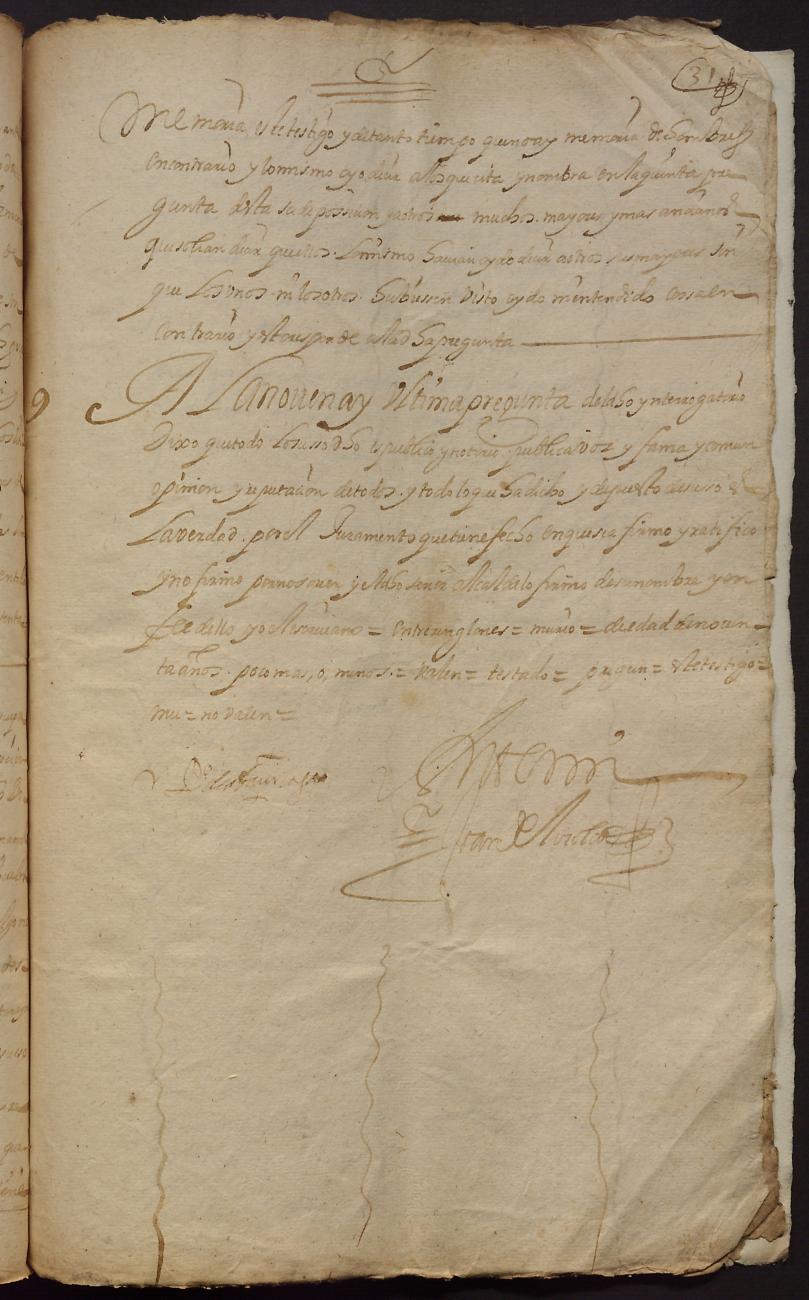 31
Memoria este testigo y de tanto tiempo que no ay memoria de hombres
en contrario y lo mismo oyo decir a los que cita y nombra en la quinta pre
gunta desta su deposicion y a otros muchos mayores y mas ancianos
que solian decir que ellos lo mismo havian oydo decir a otros sus mayores sin
que los unos ni los otros hubiesen visto oydo ni entendido cosa en
contrario y esto responde a la dha pregunta
9 A La novena y Ultima pregunta del dho ynterrogatorio
Dixo que todo lo susso dho es publico y notorio publica voz y fama y comun
opinion y reputacion de todos y todo lo que ha dicho y depuesto de suso es
La verdad por el Juramento que tiene fecho en que se afirmo y ratifico
y no firmo por no saver y el dho señor Alcalde lo firmo de su nombre y en
fee dello yo el escrivano = entre renglones = murio = de edad de noven
ta años poco mas, o, menos = valen = testado = pregun = este testigo =
mu = no valen =
Ante mi